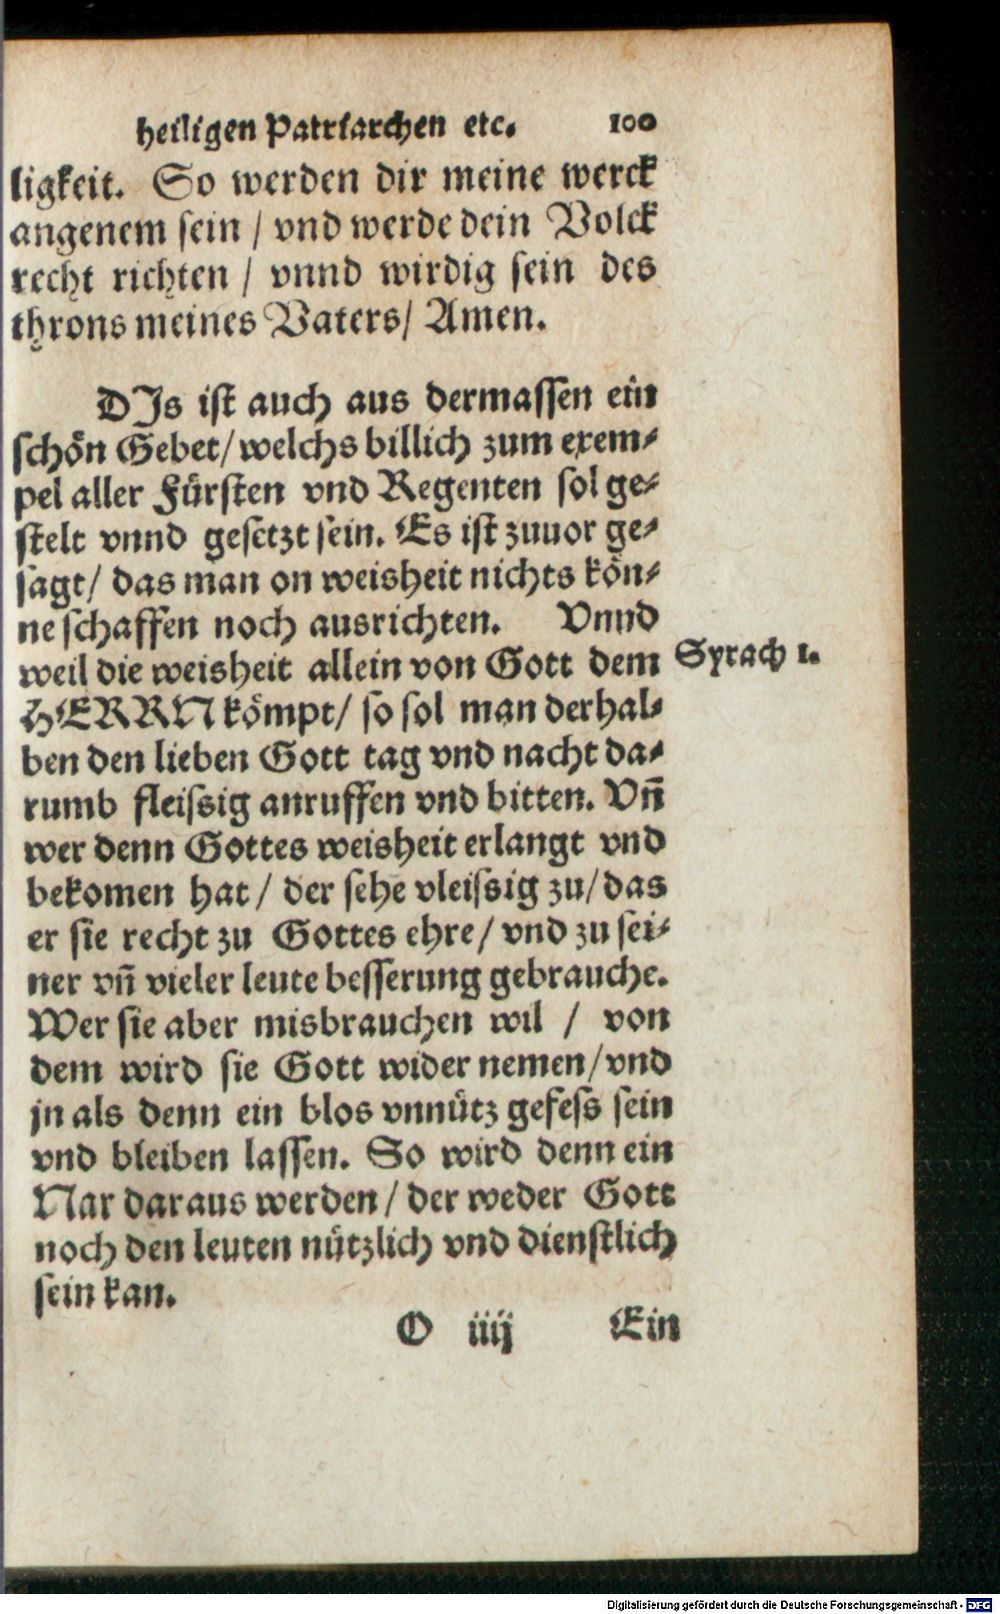 heiligen Patriarchen etc. 100
ligkeit. So werden dir meine werck
angenem sein / vnd werde dein Volck
recht richten / vnnd wirdig sein des
throns meines Vaters / Amen.
DIs ist auch aus dermassen ein
schön Gebet / welchs billich zum exem-
pel aller Fürsten vnd Regenten sol ge-
stelt vnnd gesetzt sein. Es ist zuuor ge-
sagt / das man on weisheit nichts kön-
ne schaffen noch ausrichten. Vnnd
weil die weisheit allein von Gott dem
Syrach 1.
HERRN kömpt / so sol man derhal-
ben den lieben Gott tag vnd nacht da-
rumb fleissig anruffen vnd bitten. Vn̄
wer denn Gottes weisheit erlangt vnd
bekomen hat / der sehe vleissig zu / das
er sie recht zu Gottes ehre / vnd zu sei-
ner vn̄ vieler leute besserung gebrauche.
Wer sie aber misbrauchen wil / von
dem wird sie Gott wider nemen / vnd
jn als denn ein blos vnnütz gefess sein
vnd bleiben lassen. So wird denn ein
Nar daraus werden / der weder Gott
noch den leuten nützlich vnd dienstlich
sein kan.
O iiij Ein
Digitalisierung gefördert durch die Deutsche Forschungsgemeinschaft - DFG